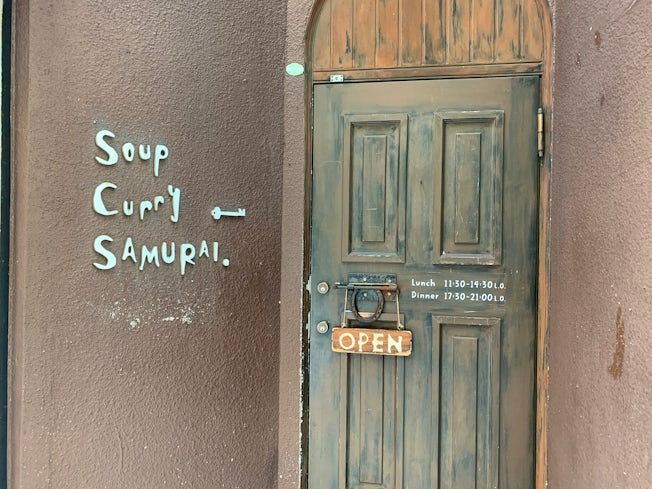 Soup
Curry
SAMURAI.
Lunch 11:30-14:30 L.O.
Dinner 17:30-21:00 L.O.
OPEN